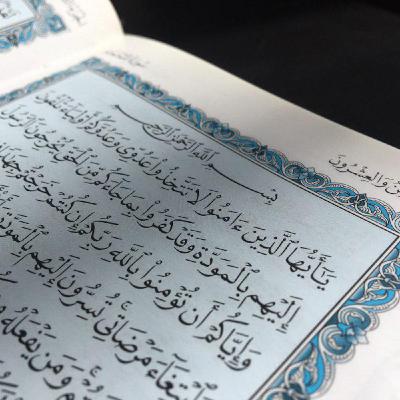 وَالْعِشْرُونَ
بِسْمِ اللَّهِ الرَّحْمَٰنِ الرَّحِيمِ
يَٰٓأَيُّهَا ٱلَّذِينَ ءَامَنُوا۟ لَا تَتَّخِذُوا۟ عَدُوِّى وَعَدُوَّكُمْ أَوْلِيَآءَ تُلْقُونَ
إِلَيْهِم بِٱلْمَوَدَّةِ وَقَدْ كَفَرُوا۟ بِمَا جَآءَكُم مِّنَ ٱلْحَقِّ يُخْرِجُونَ ٱلرَّسُولَ
وَإِيَّاكُمْ أَن تُؤْمِنُوا۟ بِٱللَّهِ رَبِّكُمْ إِن كُنتُمْ خَرَجْتُمْ جِهَٰدًا
وَٱبْتِغَآءَ مَرْضَاتِى تُسِرُّونَ إِلَيْهِم بِٱلْمَوَدَّةِ
وَمَن يَفْعَلْهُ